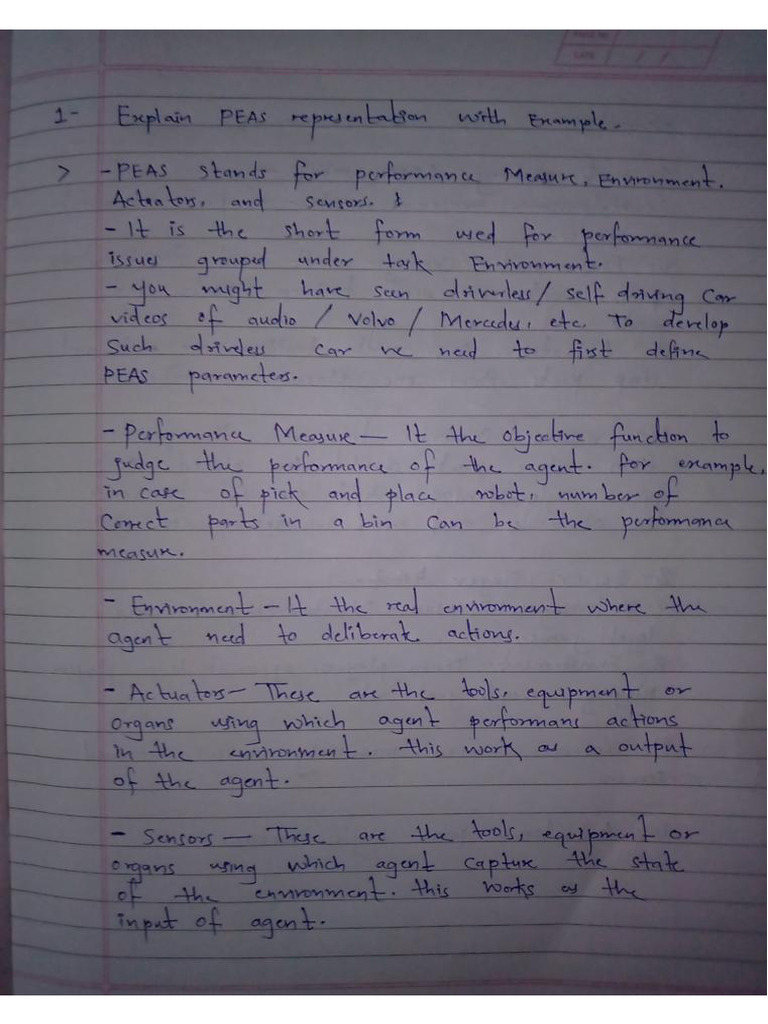 1- Explain PEAS representation with Example.
> - PEAS stands for performance Measure, Environment.
Actuators, and sensors.
- It is the short form used for performance
issues grouped under task Environment.
- you might have seen driverless / self driving Car
videos of audio / Volvo / Mercedes, etc. To develop
Such driveless car we need to first define
PEAS parameters.
- Performance Measure — It the objective function to
judge the performance of the agent. for example,
in case of pick and place robot, number of
Correct parts in a bin Can be the performance
measure.
- Environment - It the real environment where the
agent need to deliberate actions.
- Actuators - These are the tools, equipment or
organs using which agent performans actions
in the environment. this work as a output
of the agent.
- Sensors — These are the tools, equipment or
organs using which agent capture the state
of the environment. this works as the
input of agent.